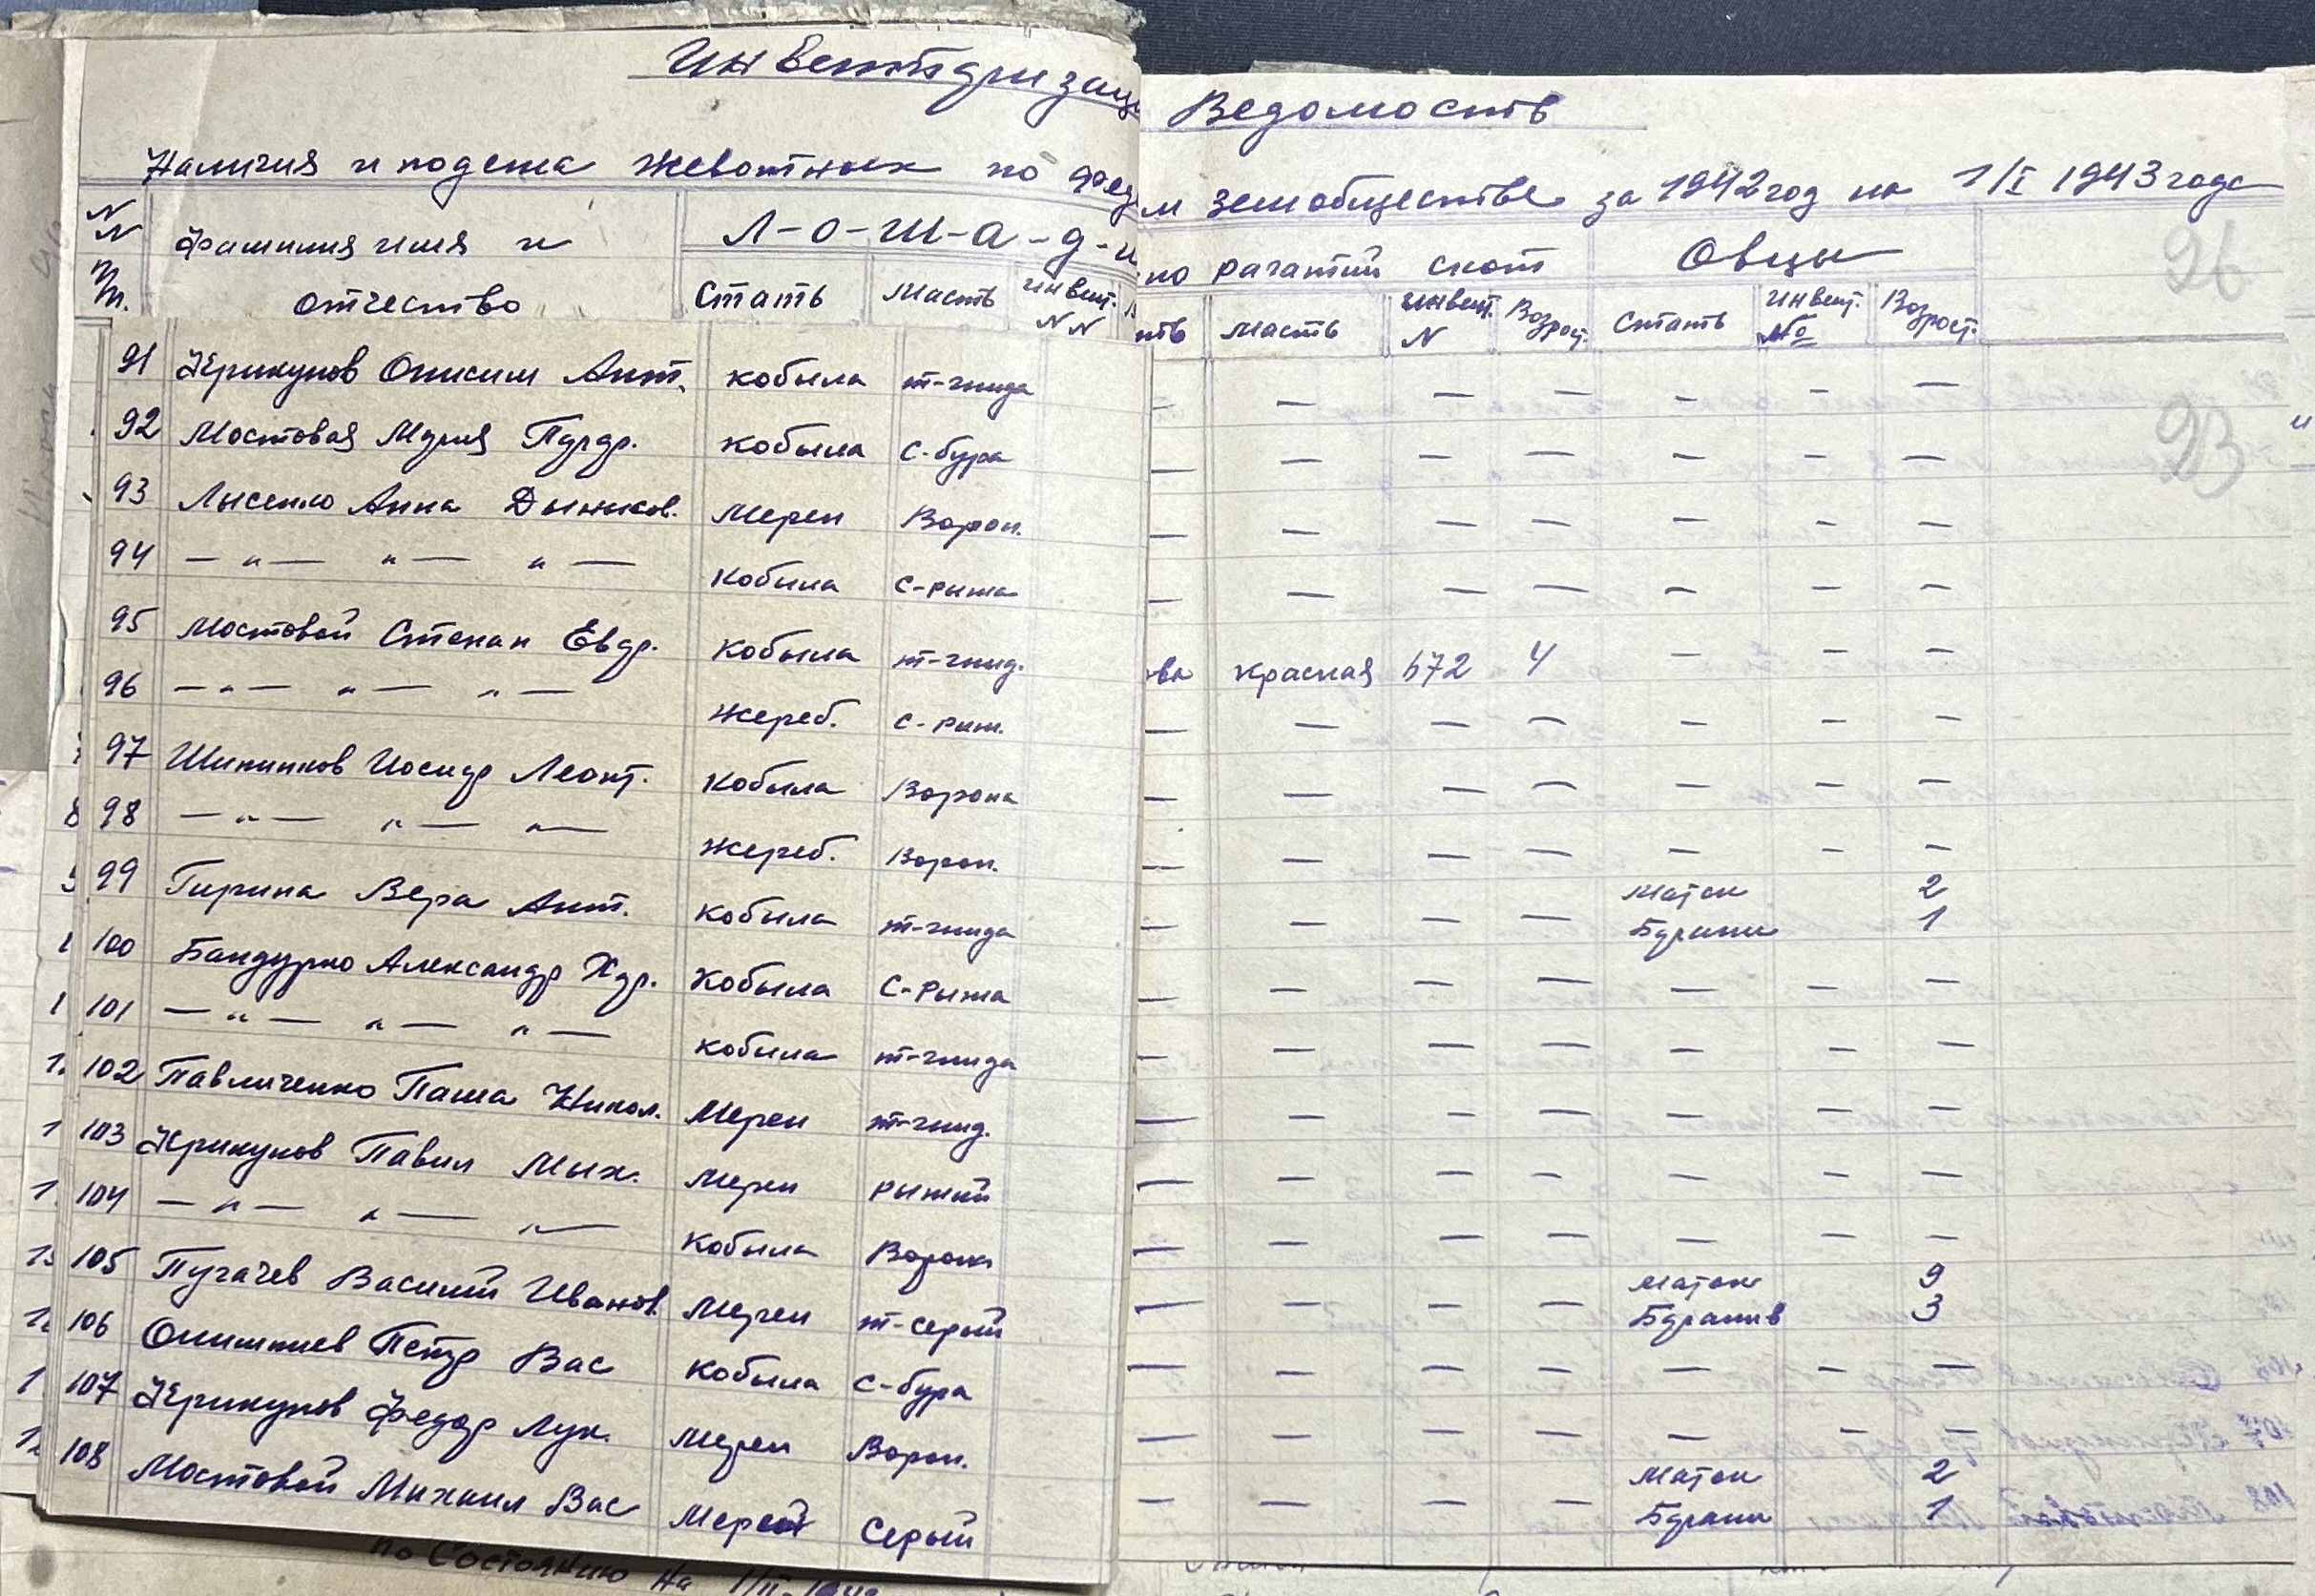 Инвентаризаци Ведомость
Наличия и подема жевотных по Фед м земобществе за 1942 год на 1/I 1943 года
NN пп. Фамилия имя и отчество Л-о-ш-а-д-и но рагатий скот Овцы 26
Стать Масть Инвент. NN ть Масть Инвент. N Возрост. Стать Инвент. № Возрост.
91 Крикунов Онисим Ант. кобыла т-гнида — — — — — — —
92 Мостовая Мария кобыла С-бура — — — — — — —
93 Лысенко Анна мерен Ворон. — — — — — — —
94 — " — " — " — кобыла С-рыжа — — — — — — —
95 Мостовой Степан Евдр. кобыла т-гнид. ва красная 672 4 — — —
96 — " — " — " — жереб. С-рыж. — — — — — — —
97 Шипинков Иосиф Леонт. кобыла Ворона — — — — — — —
98 — " — " — " — жереб. Ворон. — — — — — — —
99 Гирина Вера Ант. кобыла т-гнида — — — — Маток 2
Баран 1
100 Бандурко Александр Хар. кобыла С-Рыжа — — — — — — —
101 — " — " — " — кобыла т-гнида — — — — — — —
102 Павличенко Паша Никол. Мерен т-гнид. — — — — — — —
103 Крикунов Павил Мих. мерен рыжий — — — — — — —
104 — " — " — " — кобыла Ворона — — — — — — —
105 Пугачев Василий Иванов. мерен т-серый — — — — маток 9
Баранив 3
106 Онишнев Петр Вас кобыла С-бура — — — — — — —
107 Крикунов Федор Лук. мерен Ворон. — — — — — — —
108 Мостовой Михаил Вас Мерен Серый — — — — маток 2
Баран 1
по Состоянию на